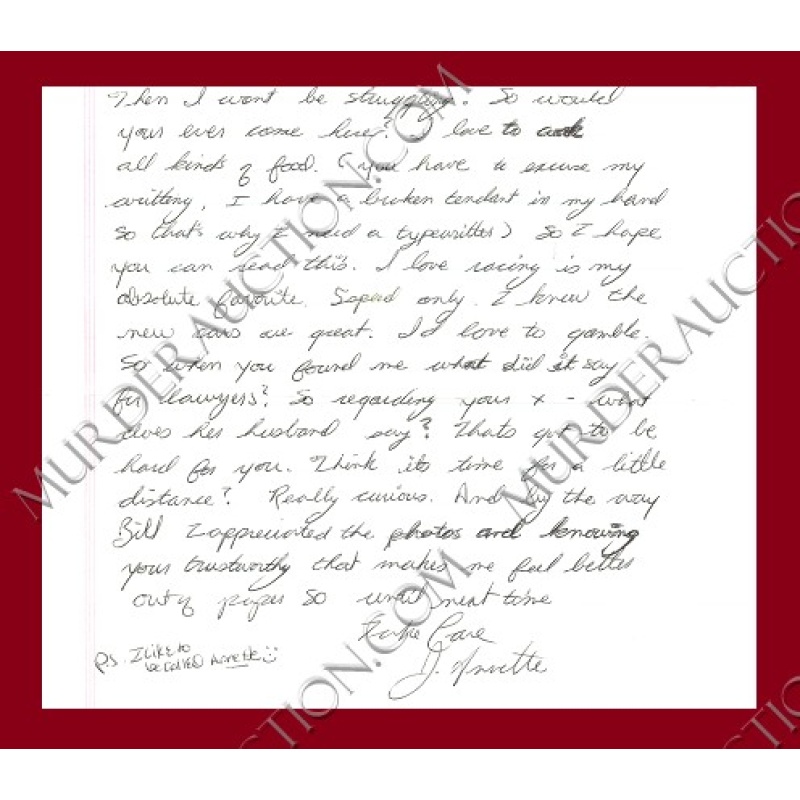 Then I wont be struggling. So would
your ever come here? I love to cook
all kinds of food. (you have to excuse my
writting, I have a broken tendant in my hand
so that's why I need a typewritter) So I hope
you can read this. I love racing is my
absolute favorite. Speed only. I knew the
new cars are great. I'd love to gamble.
So when you found me what did it say
for lawyers? So regarding your x - what
does her husband say? Thats got to be
hard for you. Think its time for a little
distance? Really curious. And by the way
Bill I appreciated the photos and knowing
your trustworthy that makes me feel better
out of paper so until next time
Take Care
J. Annette
P.S. I like to
be called Annette
MURDERAUCTION.COM
MURDERAUCTION.COM